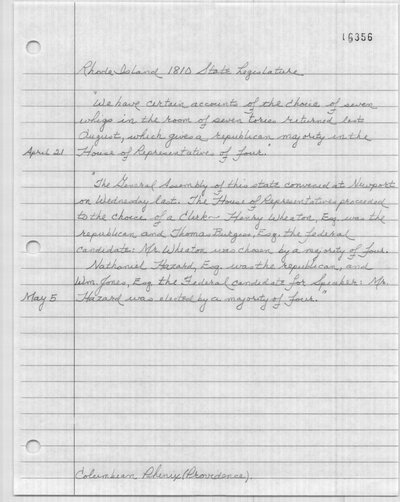 16356
Rhode Island 1810 State Legislature
"We have certain accounts of the choice of seven
whigs in the room of seven tories returned last
August, which gives a republican majority in the
April 21 House of Representatives of four."
"The General Assembly of this state convened at Newport
on Wednesday last. The House of Representatives proceeded
to the choice of a Clerk - Henry Wheaton, Esq. was the
republican and Thomas Burgess, Esq. the federal
candidate: Mr. Wheaton was chosen by a majority of four.
Nathaniel Hazard, Esq. was the republican, and
Wm. Jones, Esq. the Federal candidate for Speaker: Mr.
May 5 Hazard was elected by a majority of four."
Columbian Phenix (Providence).